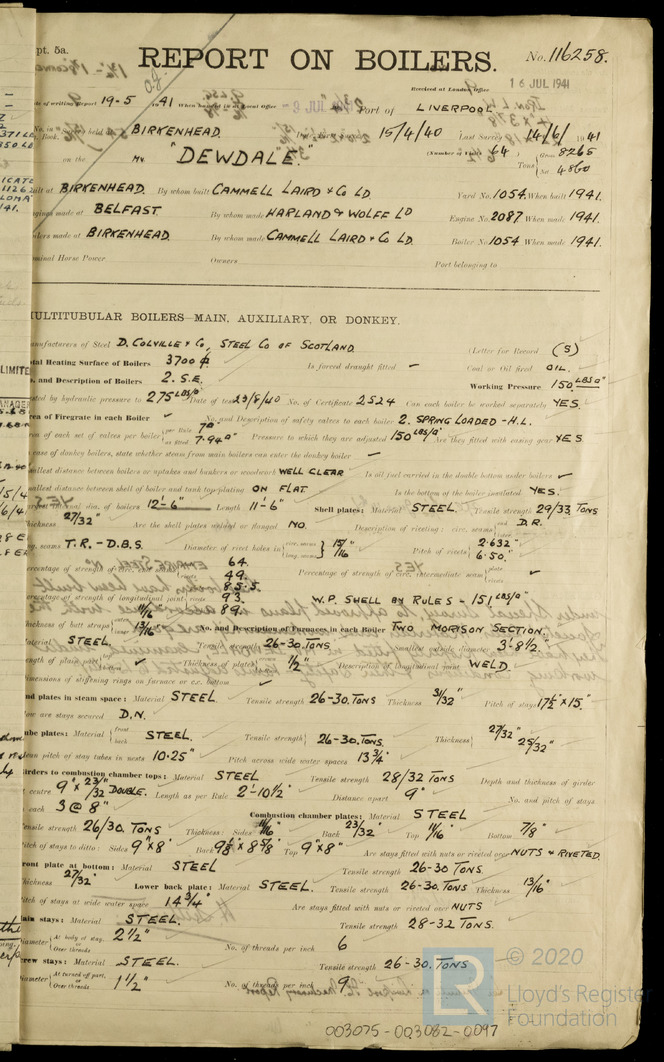 pt. 5a.
REPORT ON BOILERS.
No. 116258.
Received at London Office
16 JUL 1941
of writing Report 19-5 1941 When handed in at Local Office 9 JUL Port of LIVERPOOL
No. in Book. held BIRKENHEAD. 15/4/40 Last Survey 14/6/1941
on the MV "DEWDALE." (Number of Visits 64) Tons Gross 8265 Net 4860
built at BIRKENHEAD. By whom built CAMMELL LAIRD & Co LD. Yard No. 1054 When built 1941.
Engines made at BELFAST. By whom made HARLAND & WOLFF LD Engine No. 2087 When made 1941.
Boilers made at BIRKENHEAD. By whom made CAMMELL LAIRD & Co LD. Boiler No. 1054 When made 1941.
Nominal Horse Power Owners Port belonging to
MULTITUBULAR BOILERS—MAIN, AUXILIARY, OR DONKEY.
Manufacturers of Steel D. COLVILLE & Co, STEEL Co OF SCOTLAND (Letter for Record (S)
Total Heating Surface of Boilers 3700 ф. Is forced draught fitted ✓ Coal or Oil fired OIL.
and Description of Boilers 2. S.E. Working Pressure 150 LBS/□"
tested by hydraulic pressure to 275 LBS/□" Date of test 23/8/40 No. of Certificate 2524 Can each boiler be worked separately YES.
Area of Firegrate in each Boiler ✓ No. and Description of safety valves to each boiler 2. SPRING LOADED - H.L.
Area of each set of valves per boiler per Rule 7□" as fitted 7.94□" Pressure to which they are adjusted 150 LBS/□" Are they fitted with easing gear YES
In case of donkey boilers, state whether steam from main boilers can enter the donkey boiler ✓
Smallest distance between boilers or uptakes and bunkers or woodwork WELL CLEAR Is oil fuel carried in the double bottom under boilers ✓
Smallest distance between shell of boiler and tank top plating ON FLAT. Is the bottom of the boiler insulated YES.
Largest internal dia. of boilers 12'-6" Length 11'-6" Shell plates: Material STEEL. Tensile strength 29/33 TONS
Thickness 27/32" Are the shell plates welded or flanged NO. Description of riveting: circ. seams end D.R.
long. seams T.R.-D.B.S. Diameter of rivet holes in circ. seams long. seams 15/16" Pitch of rivets 2.632" 6.50"
Percentage of strength of 64. 49. Percentage of strength of circ. intermediate seam plate rivets ✓
85.5.
Percentage of strength of longitudinal joint 93. 89. W.P. SHELL BY RULES - 151 LBS/□"
Thickness of butt straps 11/16" 13/16" No. and Description of Furnaces in each Boiler TWO MORISON SECTION.
Material STEEL. Tensile strength 26-30. TONS. Smallest outside diameter 3'-8½"
Length of plain part ✓ Thickness of plates 1/2" Description of longitudinal joint WELD.
Dimensions of stiffening rings on furnace or c.c. bottom ✓
End plates in steam space: Material STEEL. Tensile strength 26-30. TONS Thickness 31/32" Pitch of stays 17½" x 15"
How are stays secured D.N.
Tube plates: Material front back STEEL. Tensile strength 26-30. TONS. Thickness 27/32" 25/32"
Mean pitch of stay tubes in nests 10.25" Pitch across wide water spaces 13¾"
Girders to combustion chamber tops: Material STEEL Tensile strength 28/32 TONS Depth and thickness of girder
at centre 9" x 23/32" DOUBLE. Length as per Rule 2'-10½" Distance apart 9" No. and pitch of stays
in each 3 @ 8" Combustion chamber plates: Material STEEL
Tensile strength 26/30. TONS Thickness: Sides 11/16" Back 23/32" Top 11/16" Bottom 7/8"
Pitch of stays to ditto: Sides 9" x 8" Back 9½" x 8⅝" Top 9" x 8" Are stays fitted with nuts or riveted over NUTS & RIVETED.
Front plate at bottom: Material STEEL Tensile strength 26-30 TONS
Thickness 27/32" Lower back plate: Material STEEL. Tensile strength 26-30. TONS Thickness 13/16"
Pitch of stays at wide water space 14¾" Are stays fitted with nuts or riveted over NUTS
Main stays: Material STEEL. Tensile strength 28-32 TONS.
Diameter At body of stay, or Over threads 2½" No. of threads per inch 6
Screw stays: Material STEEL. Tensile strength 26-30. TONS
Diameter At turned off part, or Over threads 1½" No. of threads per inch 9
© 2020
LR Lloyd's Register
Foundation
003075-003082-0097